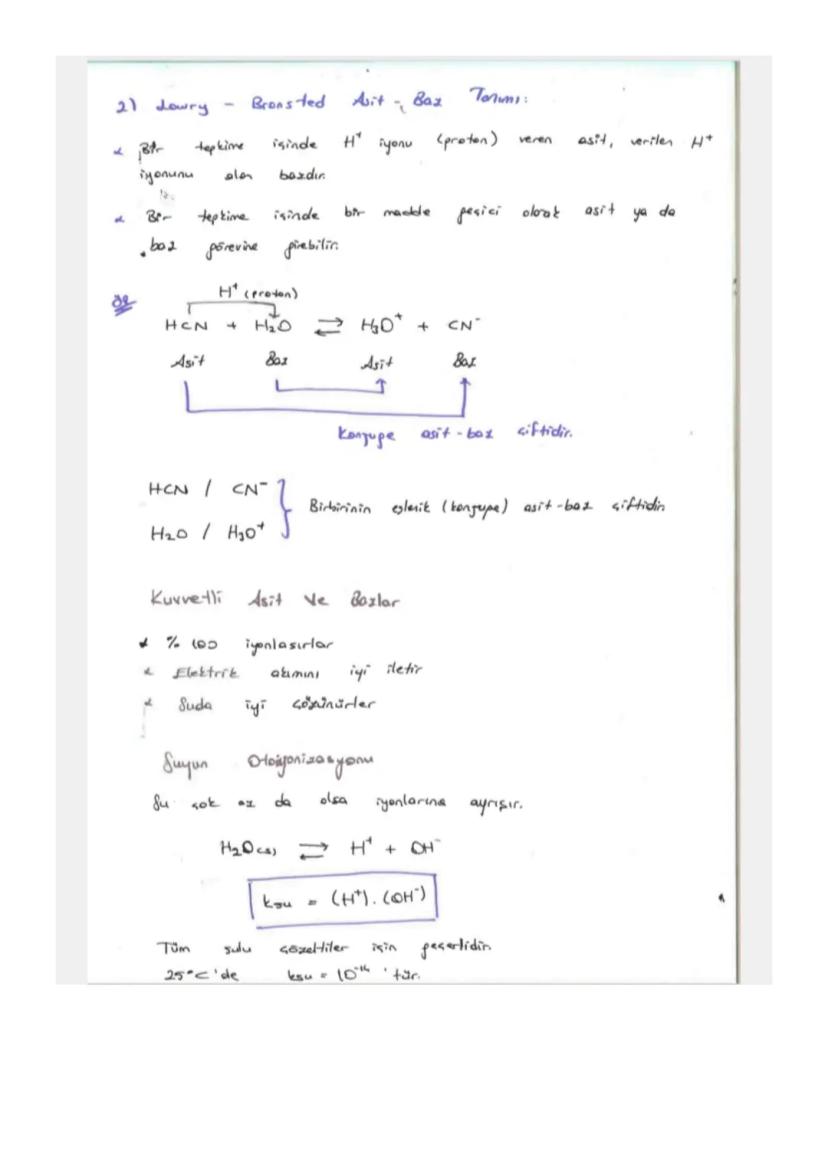 2) Lowry - Bronsted Asit - Baz Tanımı:
Bir tepkime içinde H⁺ iyonu (proton) veren asit, verilen H⁺
iyonunu alan bazdır.
Bir tepkime içinde bir madde geçici olarak asit ya da
baz görevine girebilir.
ör
H⁺ (proton)
HCN + H₂O ⇌ H₃O⁺ + CN⁻
Asit Baz Asit Baz
Konjuge asit-baz çiftidir.
HCN / CN⁻
Birbirinin eşlenik (konjuge) asit-baz çiftidir
H₂O / H₃O⁺
Kuvvetli Asit Ve Bazlar
% 100 iyonlaşırlar
Elektrik akımını iyi iletir
Suda iyi çözünürler
Suyun Otoiyonizasyonu
Su çok az da olsa iyonlarına ayrışır.
H₂O(s) ⇌ H⁺ + OH⁻
ksu = (H⁺).(OH⁻)
Tüm sulu çözeltiler için geçerlidir.
25°C'de ksu = 10⁻¹⁴ 'tür.